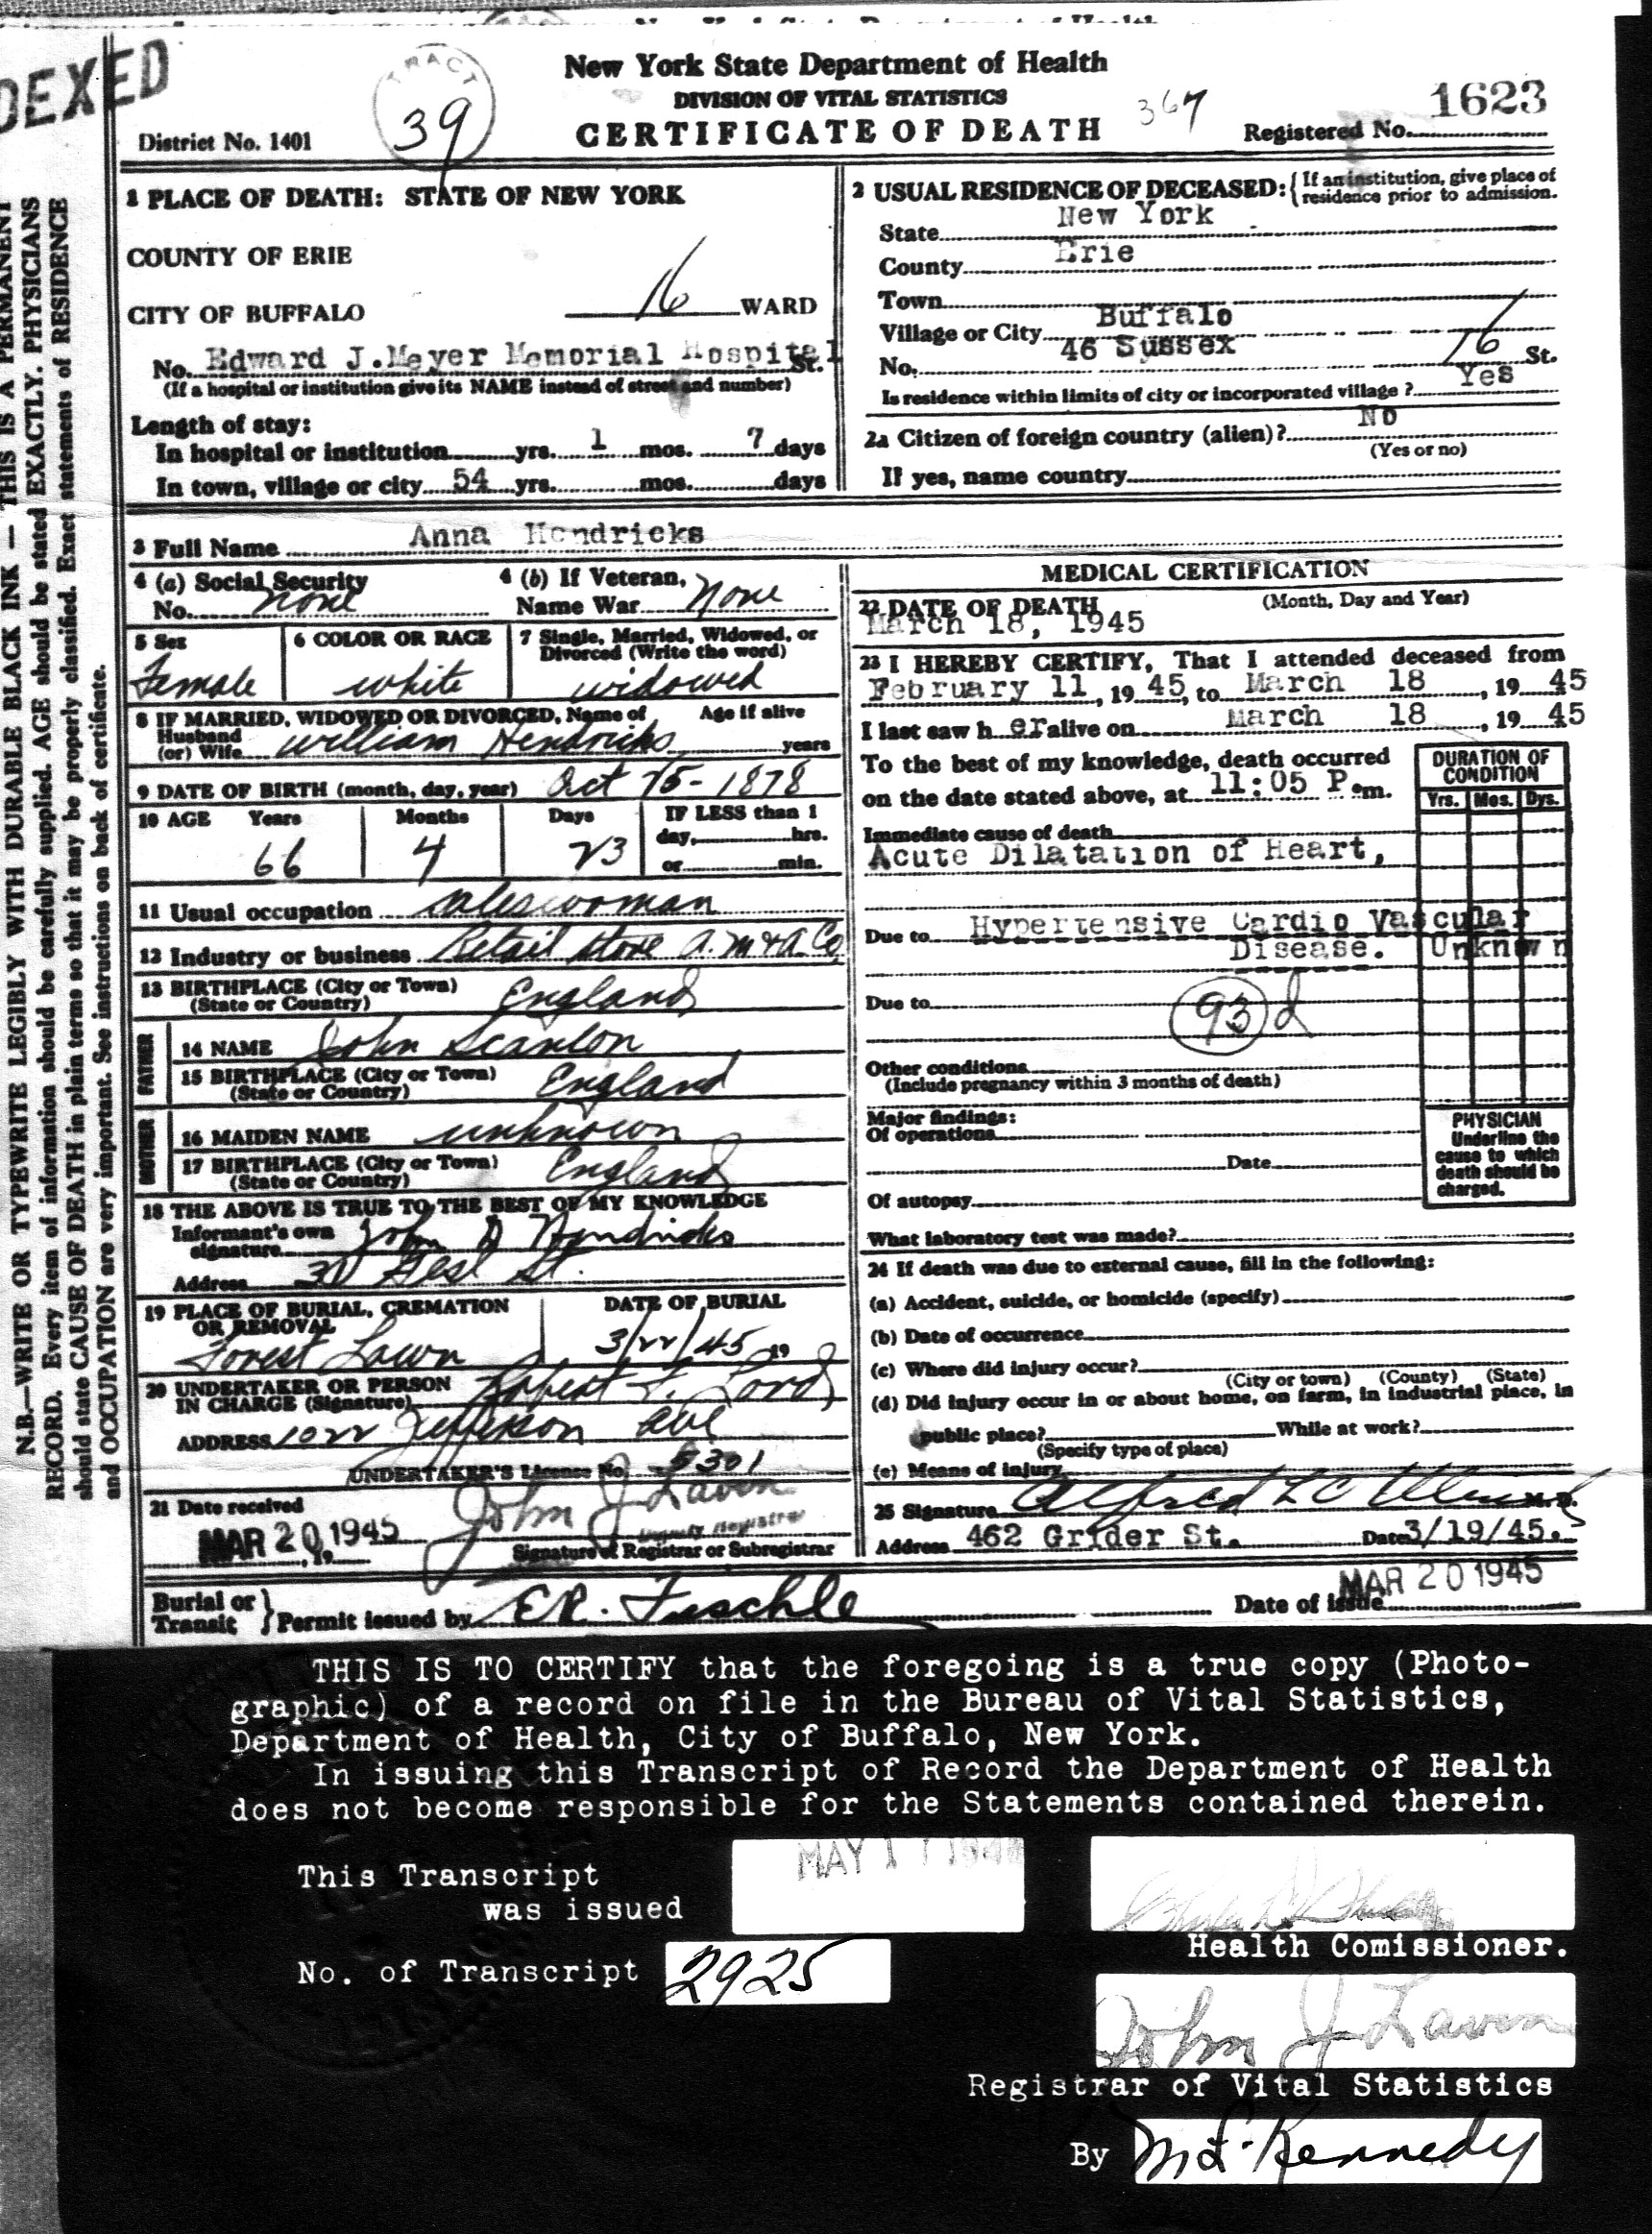 DEXED
TRACT
39
New York State Department of Health
DIVISION OF VITAL STATISTICS
CERTIFICATE OF DEATH
367
1623
District No. 1401
Registered No.
N.B.—WRITE OR TYPEWRITE LEGIBLY WITH DURABLE BLACK INK — THIS IS A PERMANENT
RECORD. Every item of information should be carefully supplied. AGE should be stated EXACTLY. PHYSICIANS
should state CAUSE OF DEATH in plain terms so that it may be properly classified. Exact statements of RESIDENCE
and OCCUPATION are very important. See instructions on back of certificate.
1 PLACE OF DEATH: STATE OF NEW YORK
COUNTY OF ERIE
CITY OF BUFFALO 16 WARD
No. Edward J.Meyer Memorial Hospital St.
(If a hospital or institution give its NAME instead of street and number)
Length of stay:
In hospital or institution yrs. 1 mos. 7 days
In town, village or city 54 yrs. mos. days
2 USUAL RESIDENCE OF DECEASED: { If an institution, give place of
residence prior to admission.
State New York
County Erie
Town
Village or City Buffalo
No. 46 Sussex 16 St.
Is residence within limits of city or incorporated village? Yes
2a Citizen of foreign country (alien)? No
(Yes or no)
If yes, name country
3 Full Name Anna Hendricks
4 (a) Social Security
No. none
4 (b) If Veteran,
Name War none
5 Sex
Female
6 COLOR OR RACE
white
7 Single, Married, Widowed, or
Divorced (Write the word)
widowed
8 IF MARRIED, WIDOWED OR DIVORCED, Name of Age if alive
Husband
(or) Wife William Hendricks years
9 DATE OF BIRTH (month, day, year) Oct 15-1878
10 AGE Years Months Days IF LESS than 1
day, hrs.
66 4 23
or min.
11 Usual occupation saleswoman
12 Industry or business Retail store A.M&A.Co.
13 BIRTHPLACE (City or Town)
(State or Country) England
FATHER
14 NAME John Scanlon
15 BIRTHPLACE (City or Town)
(State or Country) England
MOTHER
16 MAIDEN NAME unknown
17 BIRTHPLACE (City or Town)
(State or Country) England
18 THE ABOVE IS TRUE TO THE BEST OF MY KNOWLEDGE
Informant's own
signature John D Hendricks
Address St.
19 PLACE OF BURIAL, CREMATION
OR REMOVAL
Forest Lawn
DATE OF BURIAL
3/22/45 19
20 UNDERTAKER OR PERSON
IN CHARGE (Signature) Robert F. Lord
ADDRESS 1022 Jefferson Ave
UNDERTAKER'S License No. 5301
21 Date received
MAR 20 1945
19
John J Laven
Deputy Registrar
Signature of Registrar or Subregistrar
MEDICAL CERTIFICATION
22 DATE OF DEATH (Month, Day and Year)
March 18, 1945
23 I HEREBY CERTIFY, That I attended deceased from
February 11, 19 45, to March 18, 19 45
I last saw h er alive on March 18, 19 45
To the best of my knowledge, death occurred
on the date stated above, at 11:05 P.m.
DURATION OF
CONDITION
Yrs. Mos. Dys.
Immediate cause of death
Acute Dilatation of Heart,
Due to Hypertensive Cardio Vascular
Disease. Unknown
Due to
93 d
Other conditions
(Include pregnancy within 3 months of death)
Major findings:
Of operations
Date
Of autopsy
PHYSICIAN
Underline the
cause to which
death should be
charged.
What laboratory test was made?
24 If death was due to external cause, fill in the following:
(a) Accident, suicide, or homicide (specify)
(b) Date of occurrence
(c) Where did injury occur?
(City or town) (County) (State)
(d) Did injury occur in or about home, on farm, in industrial place, in
public place? While at work?
(Specify type of place)
(e) Means of injury
25 Signature Alfred M.D.
Address 462 Grider St. Date 3/19/45.
Burial or
Transit } Permit issued by E.R. Fuschle
Date of issue MAR 20 1945
THIS IS TO CERTIFY that the foregoing is a true copy (Photo-
graphic) of a record on file in the Bureau of Vital Statistics,
Department of Health, City of Buffalo, New York.
In issuing this Transcript of Record the Department of Health
does not become responsible for the Statements contained therein.
This Transcript
was issued MAY 17
No. of Transcript 2925
Health Comissioner.
John J Laven
Registrar of Vital Statistics
By M.L. Kennedy